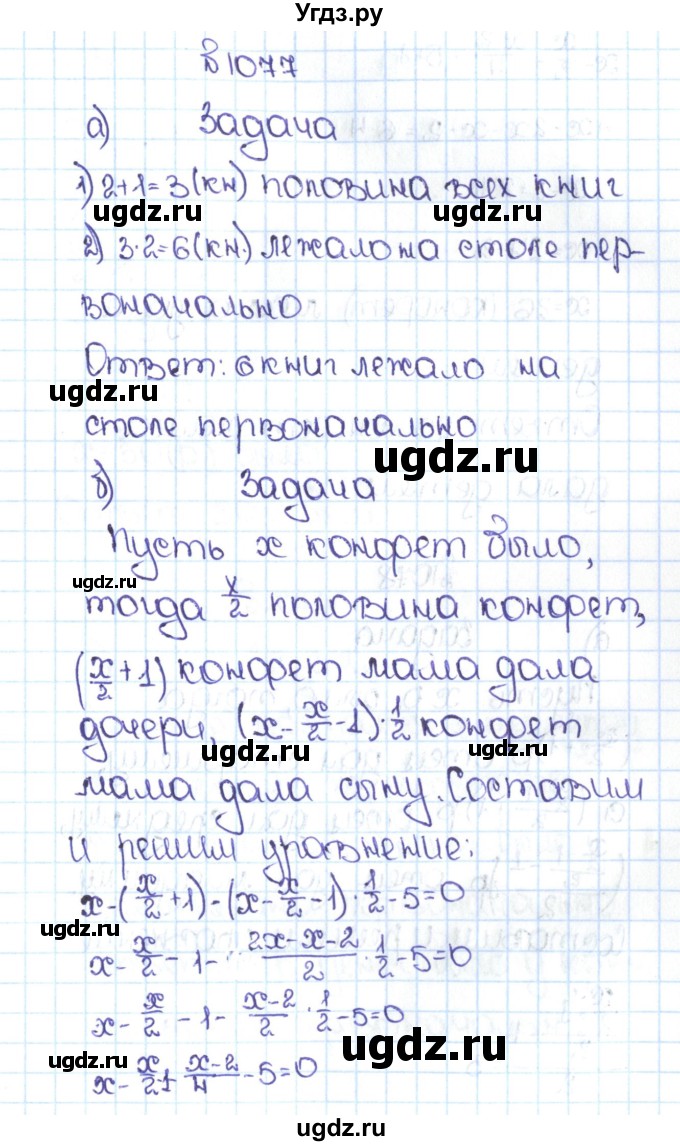 Угдз.ру
№1077
а) Задача
1) 2+1=3(кн) половина всех книг
ugdz.ru ugdz.ru
2) 3·2=6(кн.) лежало на столе пер-
ugdz.ru
воначально
Ответ: 6 книг лежало на
ugdz.ru
столе первоначально
ugdz.ru
б) Задача
Пусть x конфет было,
ugdz.ru
тогда x/2 половина конфет,
(x/2+1) конфет мама дала
дочери, (x-x/2-1)·1/2 конфет
ugdz.ru ugdz.ru
мама дала сыну. Составим
и решим уравнение:
x-(x/2+1)-(x-x/2-1)·1/2-5=0
ugdz.ru
x-x/2-1-(2x-x-2)/2·1/2-5=0
x-x/2-1-(x-2)/2·1/2-5=0
ugdz.ru
ugdz.ru
ugdz.ru